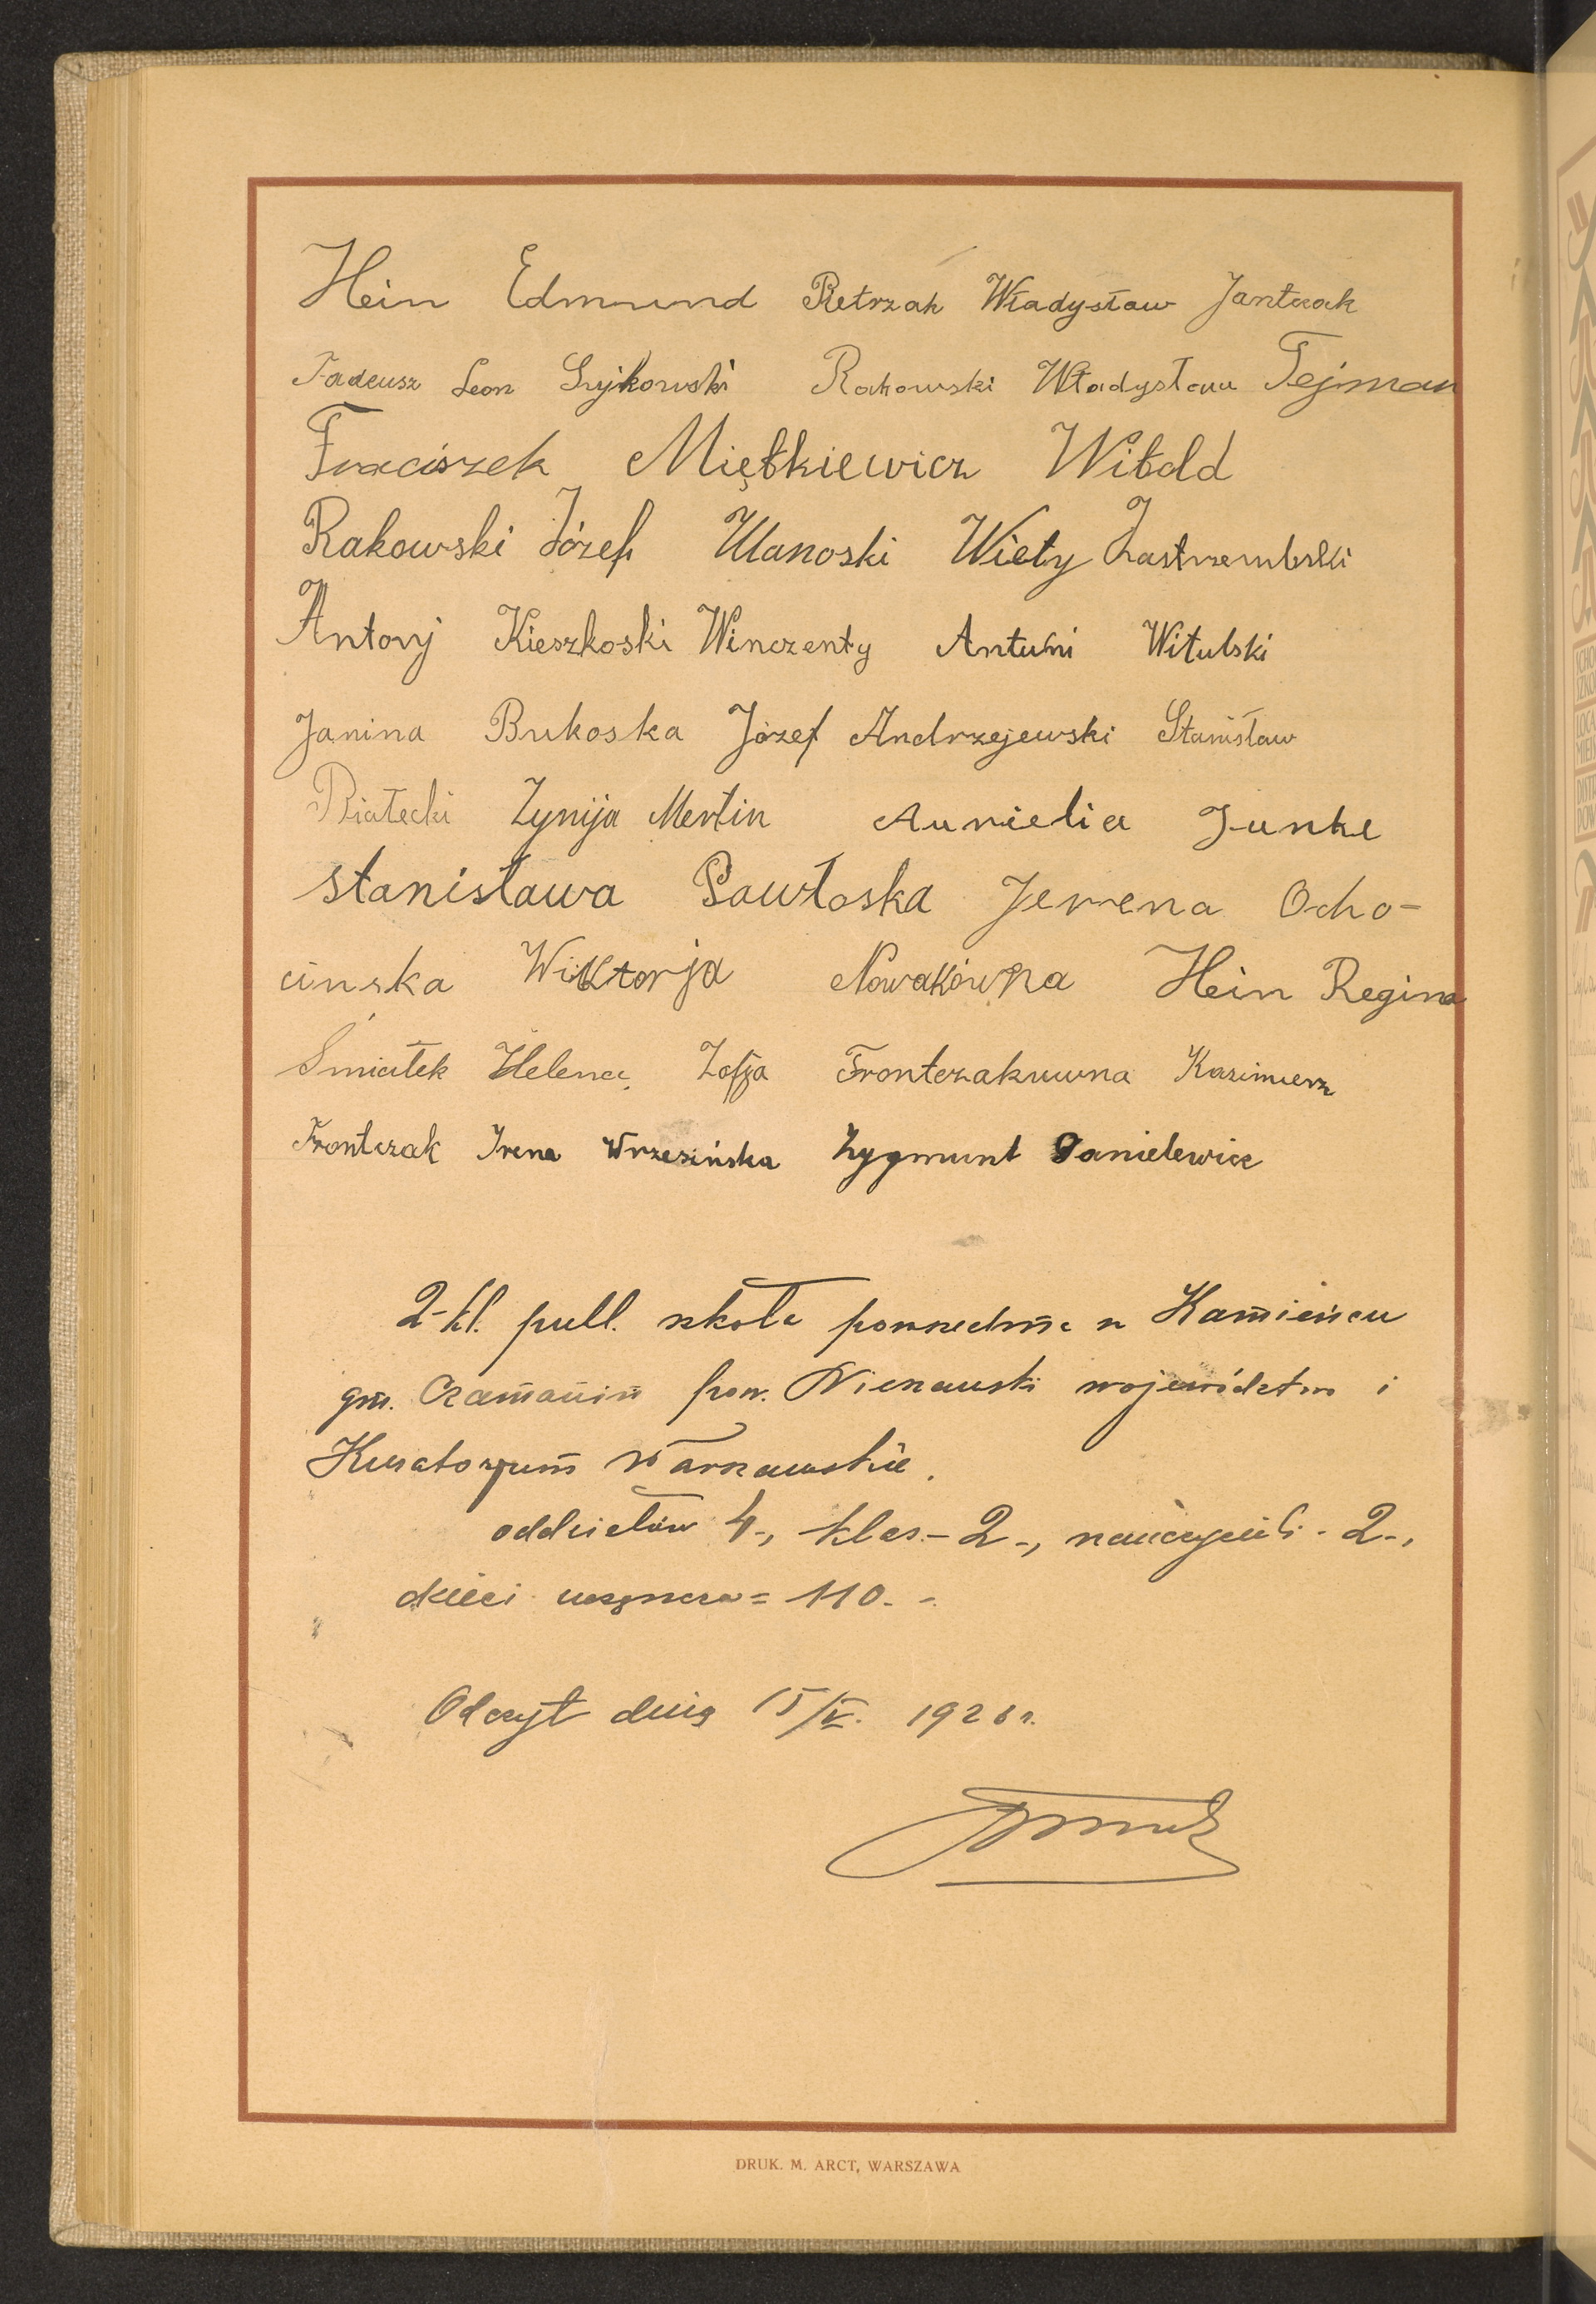 Hein Edmund Pietrzak Władysław Jantczak
Tadeusz Leon Szyjkowski Rakowski Władysław Tejman
Fraciszek Miętkiewicz Witold
Rakowski Józef Ulanoski Wiety Zastrzembski
Antonj Kieszkoski Winczenty Antuni Witulski
Janina Bukoska Józef Andrzejewski Stanisław
Piatecki Zynija Mertin Aurielia Junke
Stanisława Pawłoska Jerrena Ocho-
cinska Wiktorja Nowakówna Hein Regina
Śmiałek Helena Zofja Frontczakuwna Kazimierz
Frontczak Irena Wrzesińska Zygmunt Danielewicz
2-kl. publ. szkoła powszechna w Kamieńcu
gm. Czamanin pow. Nieszawski województwo i
Kuratorjum Warszawskie.
oddziałów 4-, klas - 2-, nauczycieli - 2-,
dzieci uczęszcza = 110. -
Odczyt dnia 15/V. 1926 r.
DRUK. M. ARCT, WARSZAWA